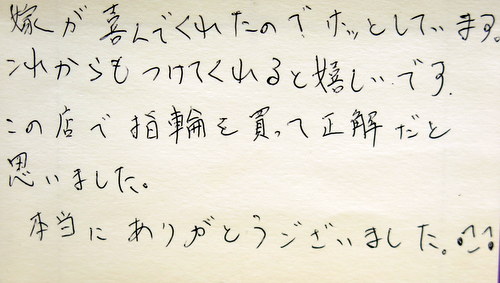 嫁が喜んでくれたのでホッとしています。
これからもつけてくれると嬉しいです.
この店で指輪を買って正解だと
思いました。
本当にありがとうございました。